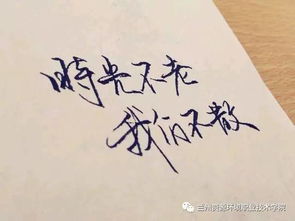 時光不老
我们不散
兰州资源环境职业技术学院